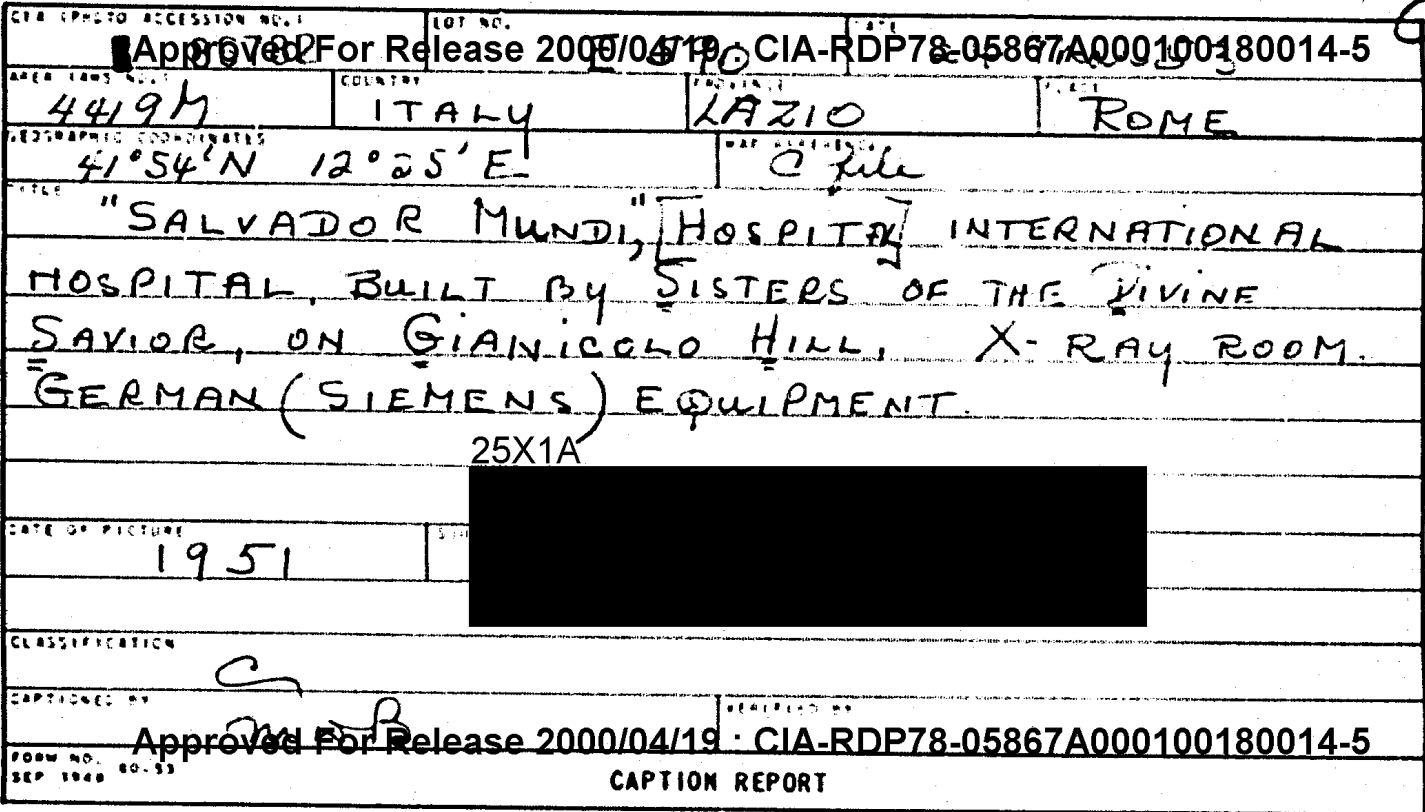 CIA (PHOTO ACCESSION NO.) LOT NO. DATE
Approved For Release 2000/04/19 : CIA-RDP78-05867A000100180014-5
COUNTRY PROVINCE PLACE
4419M ITALY LAZIO ROME
GEOGRAPHIC COORDINATES MAP REFERENCE
41°54'N 12°25'E C file
TITLE
"SALVADOR MUNDI," [HOSPITAL] INTERNATIONAL
HOSPITAL, BUILT BY SISTERS OF THE DIVINE
SAVIOR, ON GIANICOLO HILL. X-RAY ROOM.
GERMAN (SIEMENS) EQUIPMENT.
25X1A
DATE OF PICTURE
1951
CLASSIFICATION
C
CAPTIONED BY VERIFIED BY
Approved For Release 2000/04/19 : CIA-RDP78-05867A000100180014-5
FORM NO. 60-53
SEP 1948
CAPTION REPORT